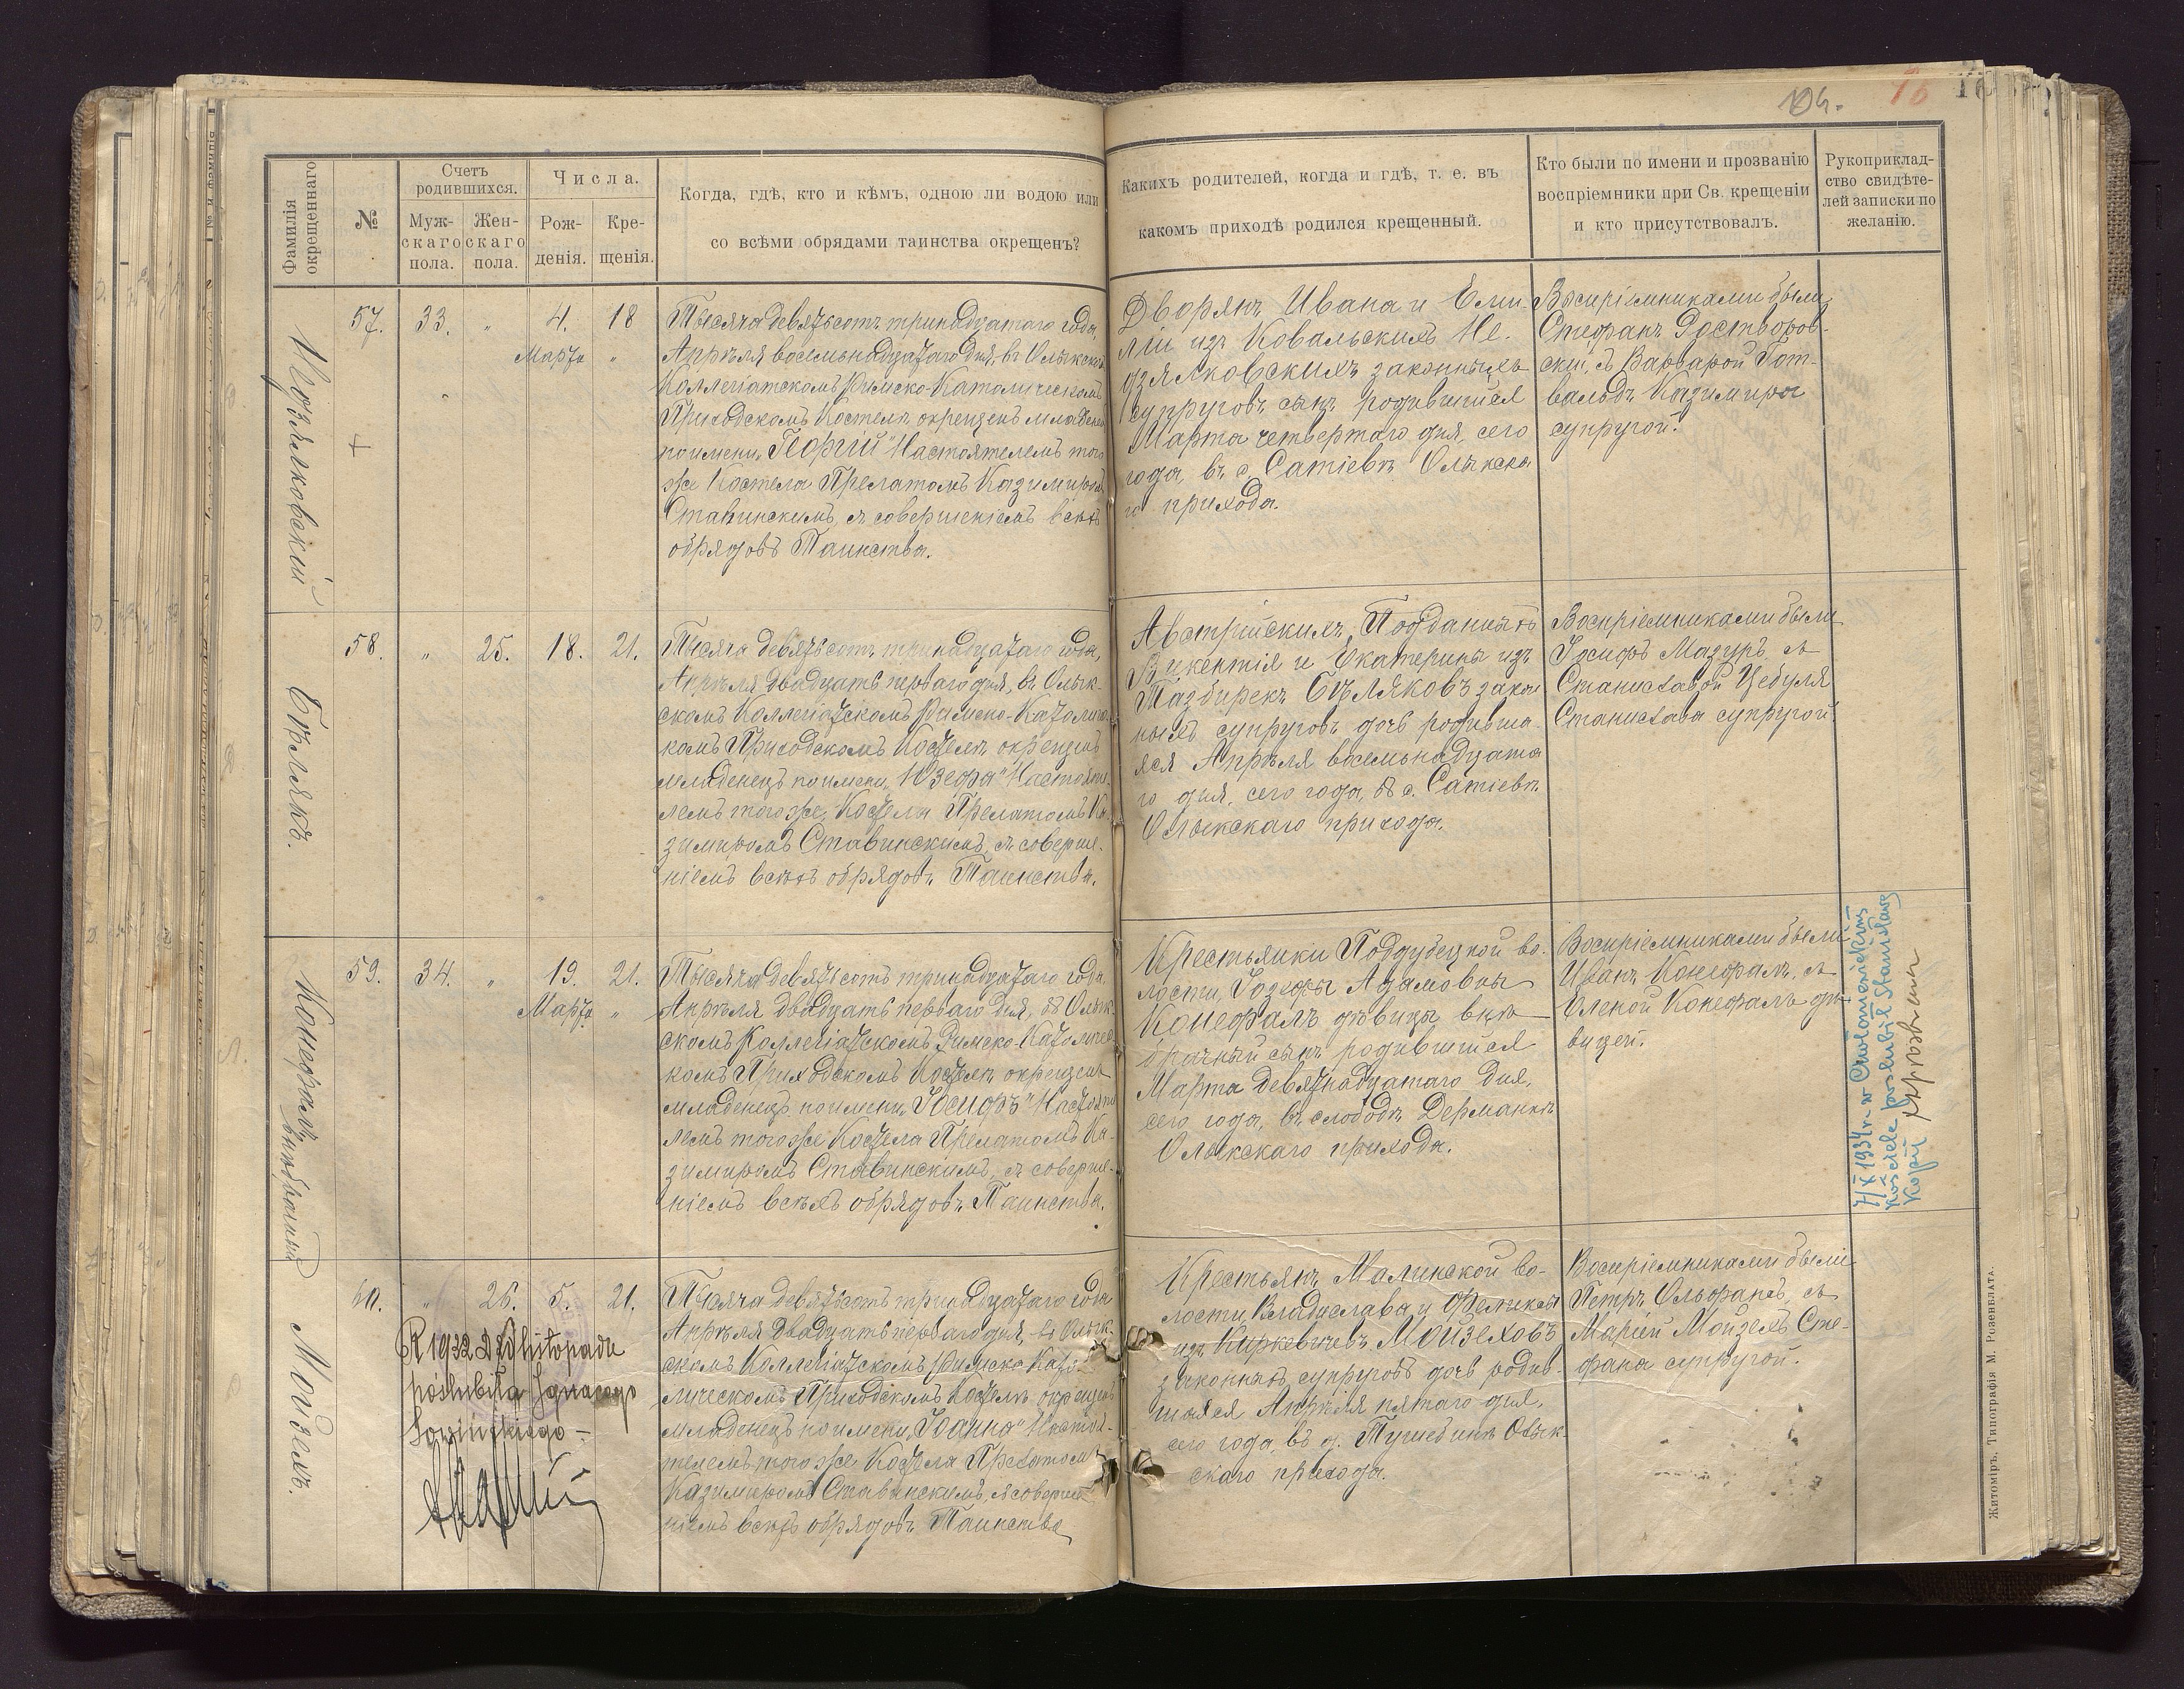 104.
16
Фамилія
окрещеннаго
№
Счетъ
родившихся.
Муж-
скаго
пола.
Жен-
скаго
пола.
Числа.
Рож-
денія.
Кре-
щенія.
Когда, гдѣ, кто и кѣмъ, одною ли водою или
со всѣми обрядами таинства окрещенъ?
Какихъ родителей, когда и гдѣ, т. е. въ
какомъ приходѣ родился крещенный.
Кто были по имени и прозванію
воспріемники при Св. крещеніи
и кто присутствовалъ.
Рукоприклад-
ство свидѣте-
лей записки по
желанію.
57.
33.
„
4.
Марта
18
„
Тысяча девятьсотъ тринадцатаго года,
Апрѣля восемьнадцатаго дня, въ Олыкскомъ
Коллегіатскомъ Римско-Католическомъ
Приходскомъ Костелѣ окрещенъ младенецъ
по имени „Георгій" Настоятелемъ того
же Костела Прелатомъ Казимиромъ
Ставинскимъ, съ совершеніемъ всѣхъ
обрядовъ Таинства.
Дворянъ Ивана и Еми-
ліи изъ Ковальскихъ Не-
дзялковскихъ законныхъ
супруговъ сынъ родившійся
Марта четвертаго дня, сего
года, въ с. Сатіевѣ Олыкска
го прихода.
Воспріемниками были
Стефанъ Достворов-
скій, съ Варварой Гот-
вальдъ Казимира
супругой.
Бѣлякъ.
58.
„
25.
18.
21.
Тысяча девятьсотъ тринадцатаго года,
Апрѣля двадцать перваго дня, въ Олык-
скомъ Коллегіатскомъ Римско-Католичес-
комъ Приходскомъ Костелѣ окрещенъ
младенецъ по имени „Юзефа" Настояте-
лемъ того же Костела Прелатомъ Ка-
зимиромъ Ставинскимъ, съ соверше-
ніемъ всѣхъ обрядовъ Таинства.
Австрійскихъ Подданныхъ
Викентія и Екатерины изъ
Тазбирекъ Бѣляковъ закон
ныхъ супруговъ дочь родивша-
яся Апрѣля восемьнадцата
го дня, сего года, въ с. Сатіевѣ
Олыкскаго прихода.
Воспріемниками были
Іосифъ Мазуръ, съ
Станиславой Цебуля
Станислава супругой.
Конефалъ
внѣбрачный
59.
34.
„
19.
Марта
21.
„
Тысяча девятьсотъ тринадцатаго года,
Апрѣля двадцать перваго дня, въ Олык-
скомъ Коллегіатскомъ Римско-Католичес-
комъ Приходскомъ Костелѣ окрещенъ
младенецъ по имени „Іосифъ" Настояте
лемъ того же Костела Прелатомъ Ка-
зимиромъ Ставинскимъ, съ соверше-
ніемъ всѣхъ обрядовъ Таинства.
Крестьянки Поддубецкой во-
лости, Іозефы Адамовны
Конефалъ дѣвицы внѣ
брачный сынъ родившійся
Марта девятнадцатаго дня,
сего года, въ слободѣ Дерманкѣ
Олыкскаго прихода.
Воспріемниками были
Иванъ Конефалъ, съ
Еленой Конефалъ дѣ-
вицей.
7/X 1934 r. w
kościele poślubił Stanisławę
Kopij
Мойзехъ.
60.
„
26.
5.
21.
R 1932 D listopada
poślubiła Ignacego
Тысяча девятьсотъ тринадцатаго года
Апрѣля двадцать перваго дня, въ Олык-
скомъ Коллегіатскомъ Римско Като-
лическомъ Приходскомъ Костелѣ окрещенъ
младенецъ по имени „Іоанна" Настоя-
телемъ того же Костела Прелатомъ
Казимиромъ Ставинскимъ, съ соверше
ніемъ всѣхъ обрядовъ Таинства
Крестьянъ Малинской во-
лости Владислава и Феликсы
изъ Киркевичевъ Мойзеховъ
законныхъ супруговъ дочь родив-
шаяся Апрѣля пятаго дня,
сего года, въ д. Олык-
скаго прихода.
Воспріемниками были
Петръ Ольфанъ, съ
Маріей Мойзехъ Сте-
фана супругой.
Житоміръ. Типографія М. Розенблата.